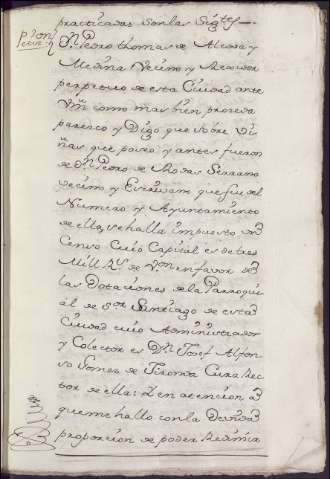 practicadas son las Sigtes.
Pon
Dn. Pedro thomas de Alcosa y
Medina Vecino y Rexidor
perpetuo de esta Ciudad ante
Vm. como mas bien proceda
parezco y Digo que sobre Vi
ñas que poseo y antes fueron
de Dn. Pedro de Rosas Serrano
vecino y Escrivano que fue del
Numero y Ayuntamiento
de ella, se halla impuesto un
Censo cuio Capital es de tres
Mill Rs. de Von. en favor de
las Dotaciones de la Parroqui
al de Sor. Santiago de esta
Ciudad cuio Administrador
y Colector es Dn. Josef Alfon
so Gomez de Tirona Cura Rec
tor de ella: Y en atencion a
que me hallo con la Devida
proporcion de poder Redimir